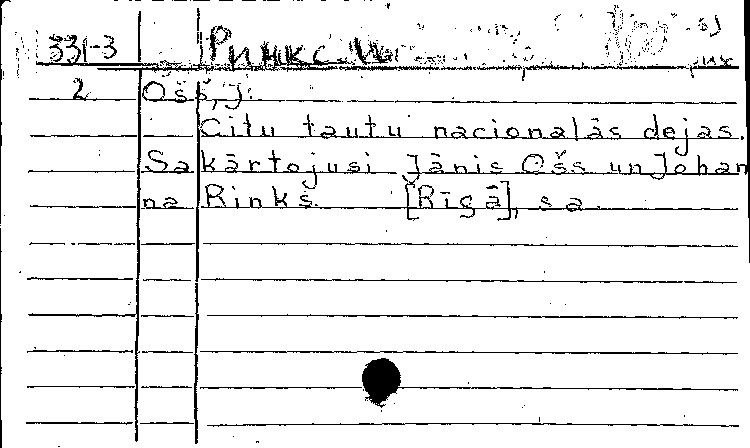 331-3 Ринкс И
2 Ošs, J.
Citu tautu nacionalās dejas.
Sakārtojusi Jānis Ošs un Johan
na Rinks [Rīgā], s a